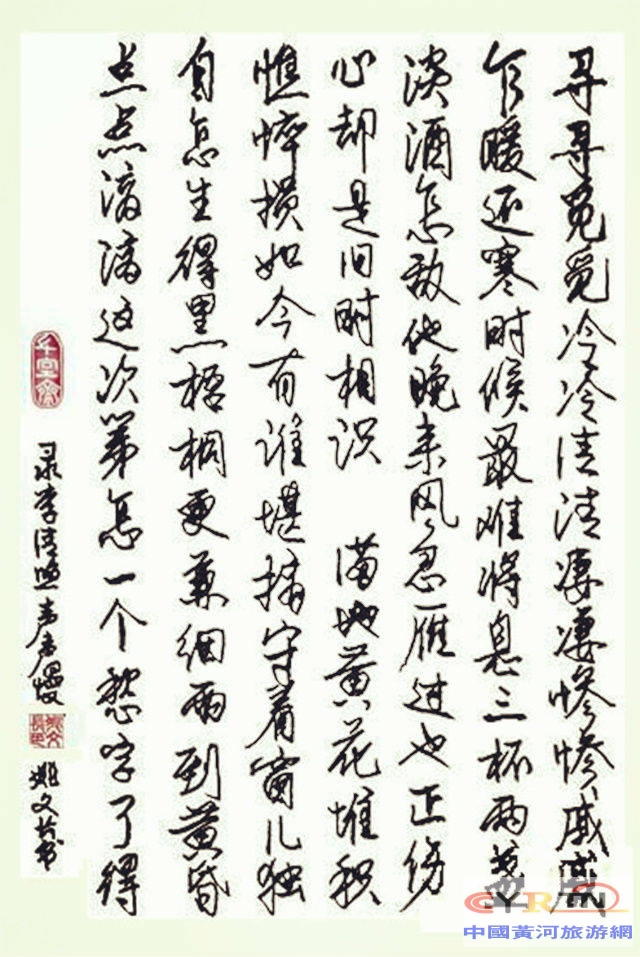 寻寻觅觅冷冷清清凄凄惨惨戚戚
乍暖还寒时候最难将息三杯两盏
淡酒怎敌他晚来风急雁过也正伤
心却是旧时相识 满地黄花堆积
憔悴损如今有谁堪摘守着窗儿独
自怎生得黑梧桐更兼细雨到黄昏
点点滴滴这次第怎一个愁字了得
录李清照声声慢
中國黃河旅游網